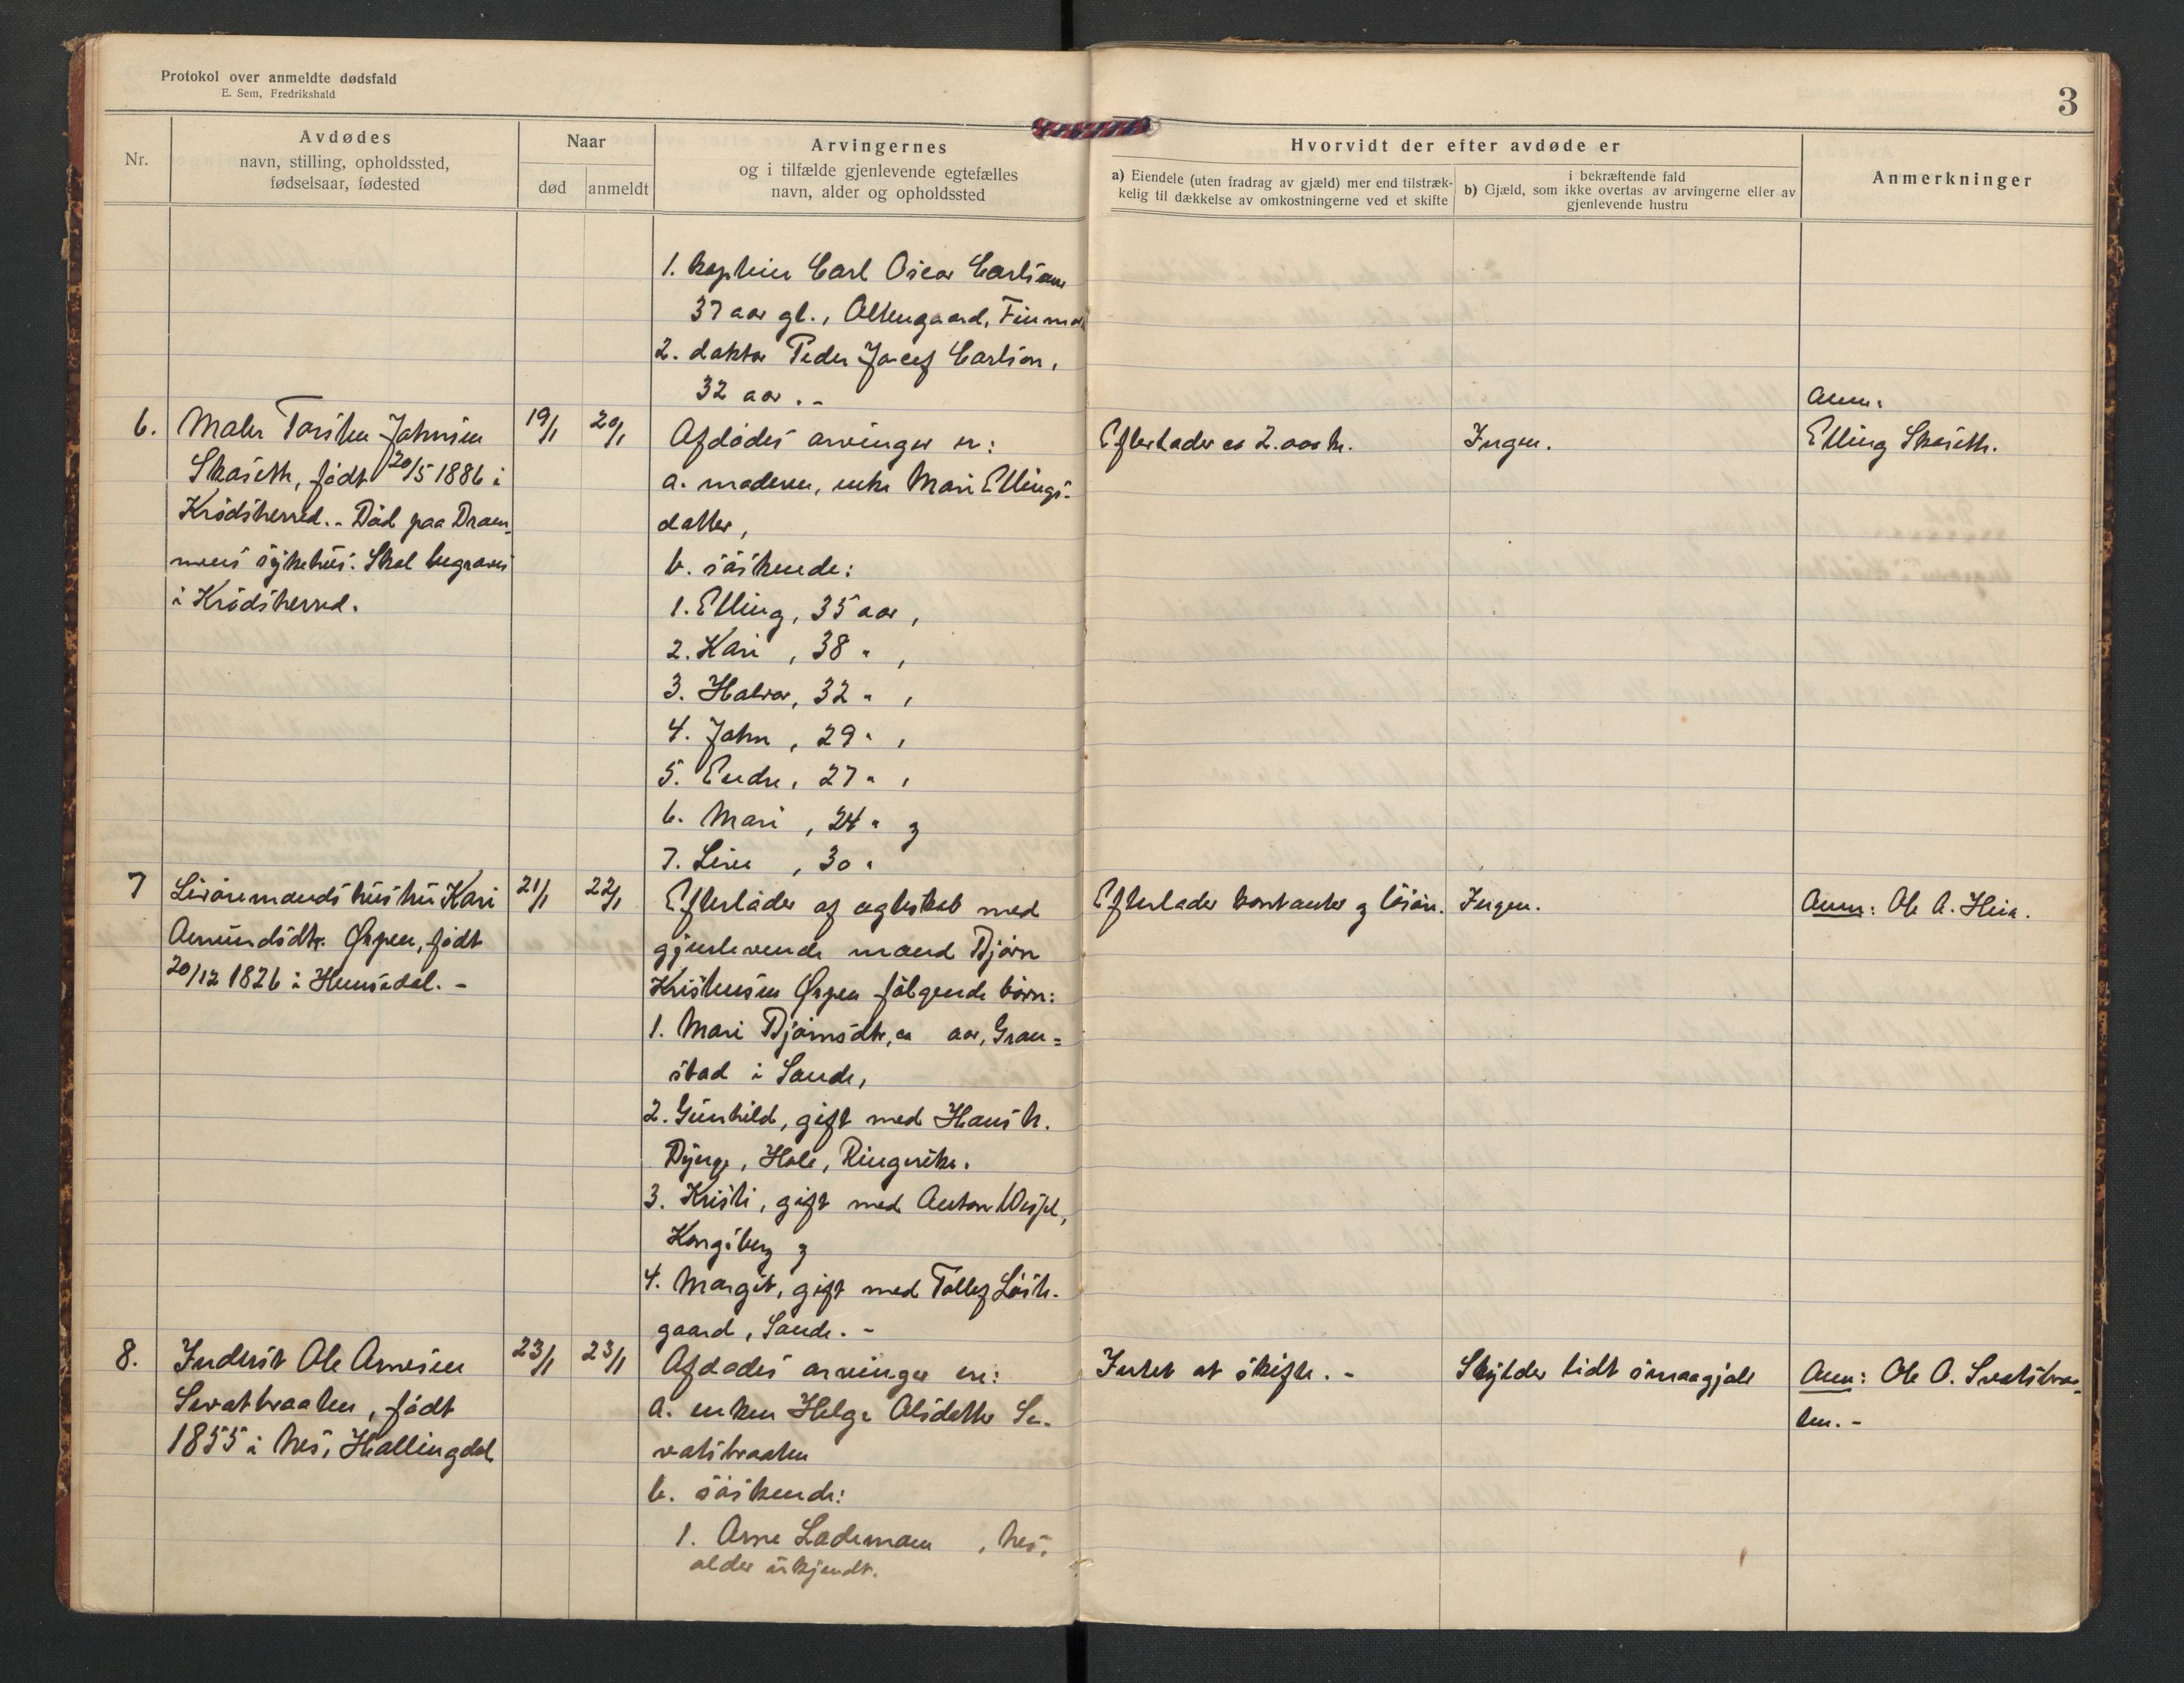 Protokol over anmeldte dødsfald
E. Sem, Fredrikshald
3
Nr.
Avdødes
navn, stilling, opholdssted,
fødselsaar, fødested
Naar
død
anmeldt
Arvingernes
og i tilfælde gjenlevende egtefælles
navn, alder og opholdssted
Hvorvidt der efter avdøde er
a) Eiendele (uten fradrag av gjæld) mer end tilstræk-
kelig til dækkelse av omkostningerne ved et skifte
i bekræftende fald
b) Gjæld, som ikke overtas av arvingerne eller av
gjenlevende hustru
Anmerkninger
1. kaptein Carl Oscar Carlson
37 aar gl., Altengaard, Finmar
2. doktor Peder Jocef Carlson,
32 aar.-
6.
Maler Torsten Johnsen
Skaseth, født 20/5 1886 i
Krødsherred.- Død paa Dram-
mens sykehus. Skal begraves
i Krødsherred.
19/1
20/1
Afdødes arvinger er:
a. moderen, enke Mari Ellings-
datter,
b. søskende:
1. Elling, 35 aar,
2. Kari, 38 " ,
3. Halvor, 32 " ,
4. John, 29 " ,
5. Endre, 27 " ,
6. Mari, 24 " og
7. Line, 30 "
Efterlader ca 2.000 kr.
Ingen.
Anm:
Elling Skaseth.
7
Livøremands hustru Kari
Amundsdtr. Ørpen, født
20/12 1826 i Hemsedal.-
21/1
22/1
Efterlader af egteskab med
gjenlevende mand Bjørn
Kristensen Ørpen følgende børn:
1. Mari Bjørnsdtr, ca aar, Gran-
stad i Sande,
2. Gunhild, gift med Hans K.
Hole, Ringerike.
3. Kristi, gift med Anton
Kongsberg og
4. Margit, gift med Tollef Løsh-
gaard, Sande.-
Efterlader kontanter og løsøre.
Ingen.
Anm: Ole A. Heia.
8.
Inderst Ole Arnesen
Sevatbraaten, født
1855 i Nes, Hallingdal
23/1
23/1
Afdødes arvinger er:
a. enken Helge Olsdatter Se-
vatsbraaten
b. søskende:
1. Arne Lademoen , Nes,
alder ukjendt.
Intet at skifte.-
Skylder lidt smaagjæld
Anm: Ole O. Svatsbraa-
ten.-